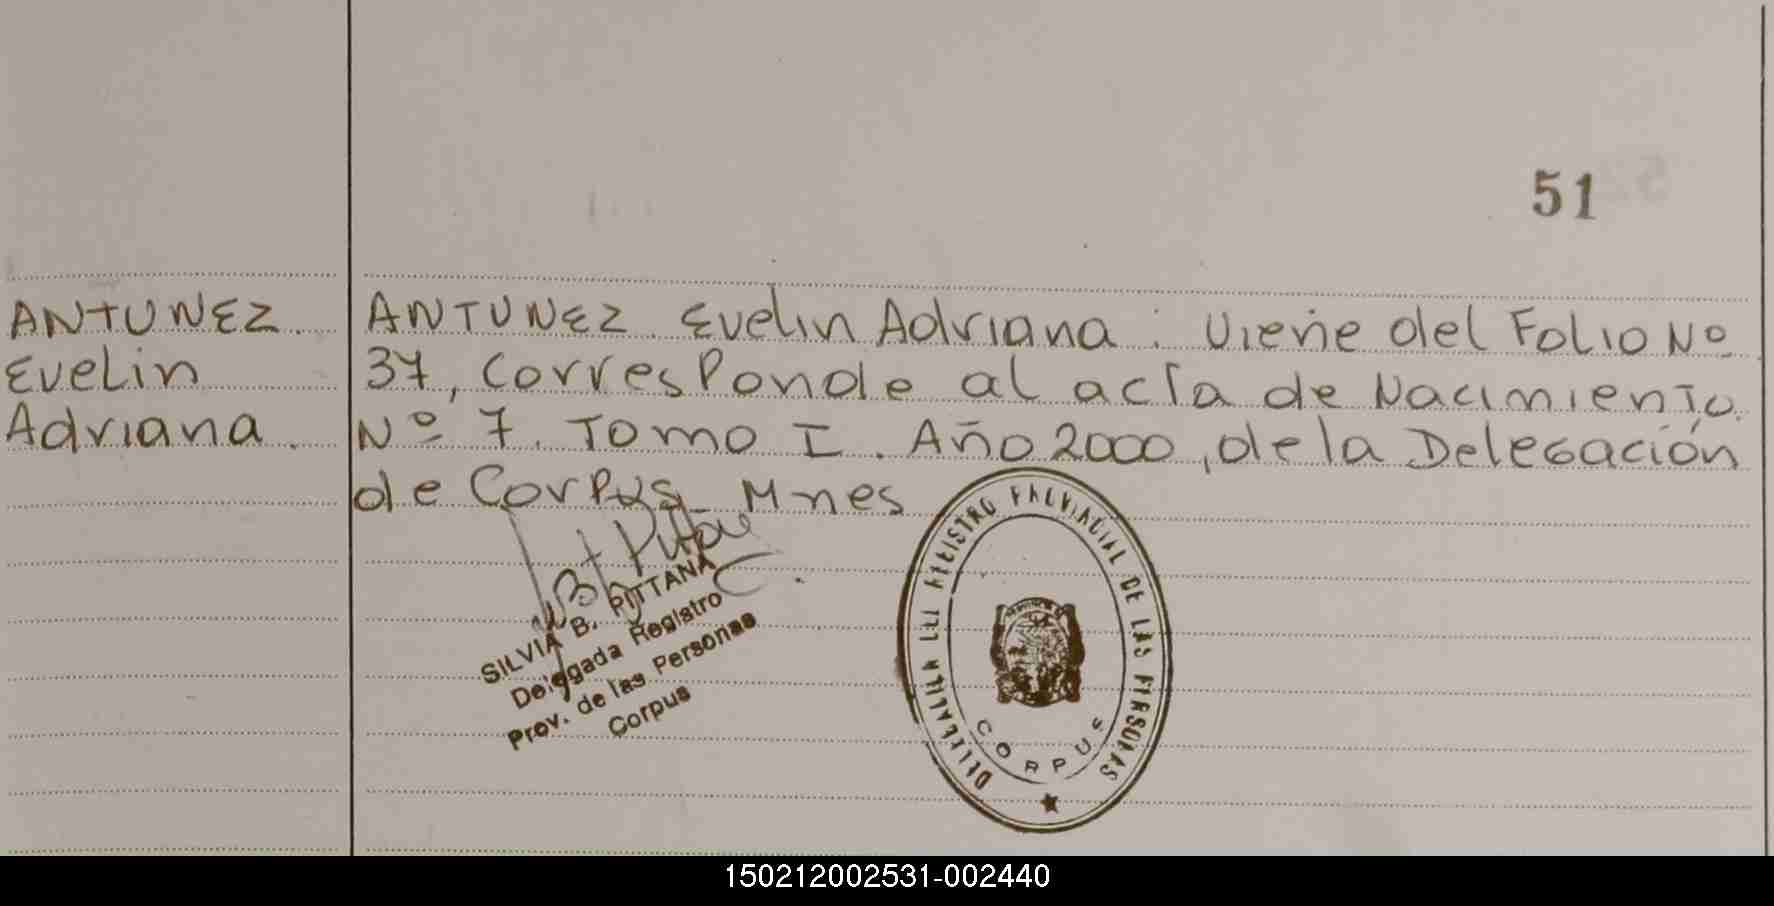 51
ANTUNEZ
Evelin
Adriana.
ANTUNEZ. Evelin Adriana: Viene del Folio Nº
37, corresponde al acta de Nacimiento.
Nº 7. Tomo I. Año 2000, de la Delegación
de Corpus. Mnes
SILVIA B. PITTANA
Delegada Registro
Prov. de las Personas
Corpus
REGISTRO PROVINCIAL DE LAS PERSONAS
CORPUS
150212002531-002440